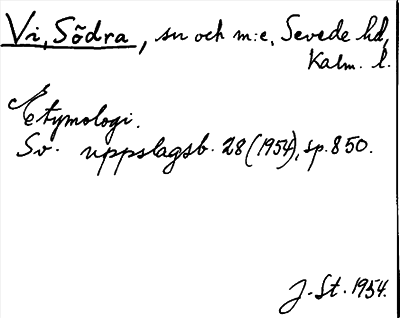 Vi, Södra, sn och m:e, Sevede hd,
Kalm. l.
Etymologi.
Sv. uppslagsb. 28 (1954), sp. 850.
J. St. 1954.